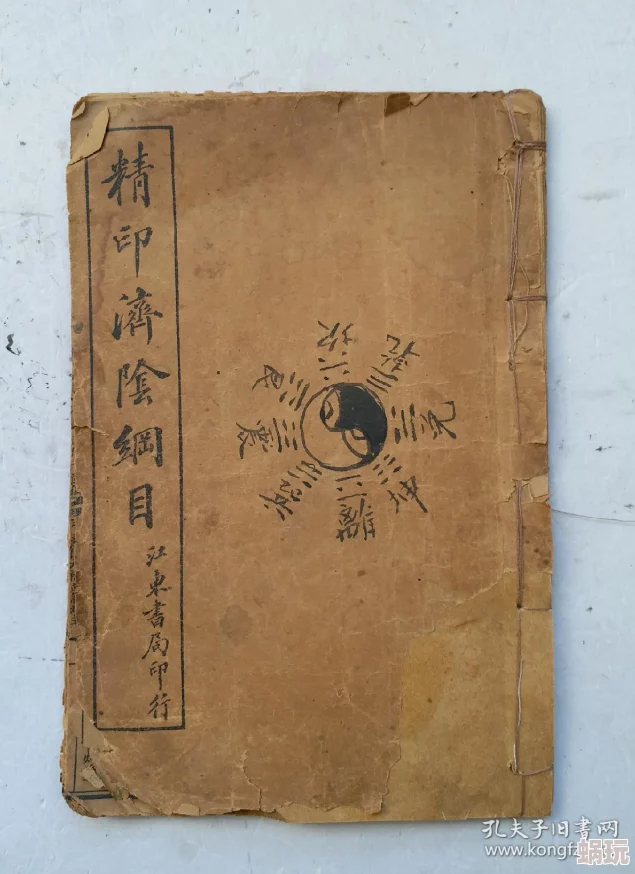 精印濟陰綱目
江東書局印行
坎
乾
艮
兌
震
巽
離
坤
孔夫子旧書网
www.kongfz.com
蜗玩